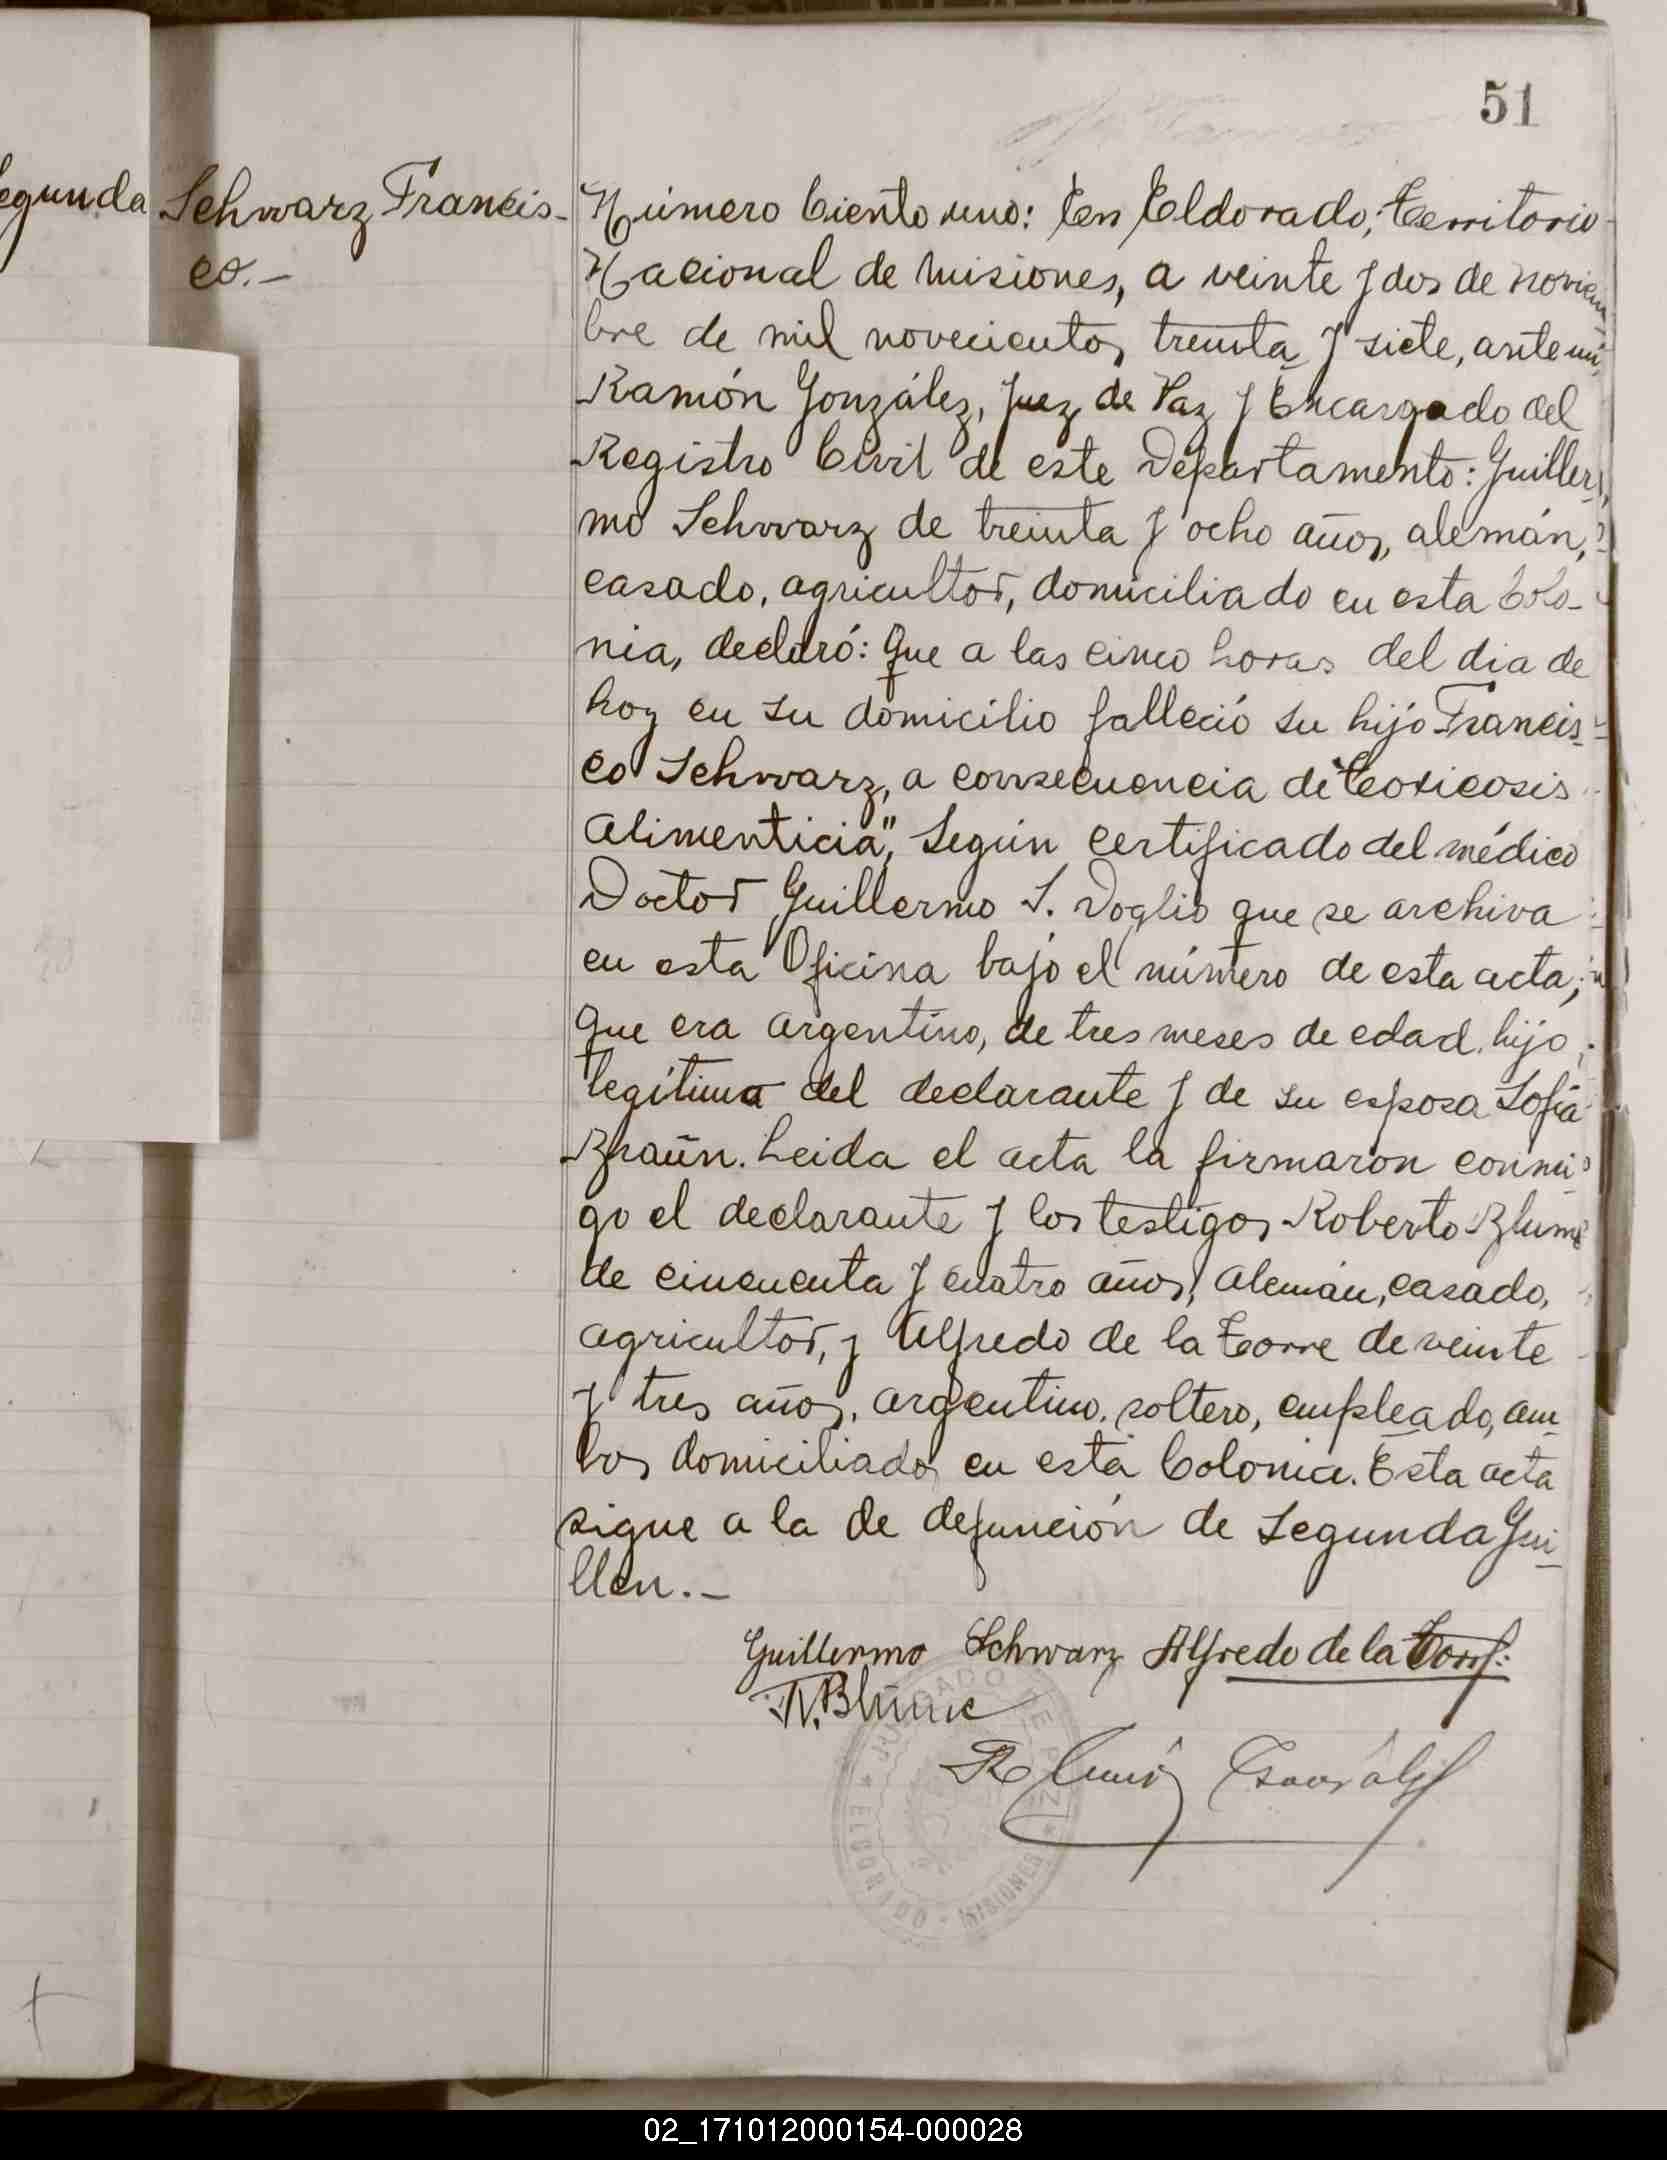 51
egunda
Schwarz Francis-
co.-
Número Ciento uno: En Eldorado, Territorio
Nacional de Misiones, a veinte y dos de noviem
bre de mil novecientos treinta y siete, ante mí,
Ramón González, Juez de Paz y Encargado del
Registro Civil de este Departamento: Guiller-
mo Schwarz de treinta y ocho años, alemán,
casado, agricultor, domiciliado en esta Colo-
nia, declaró: Que a las cinco horas del dia de
hoy en su domicilio falleció su hijo Francis-
co Schwarz, a consecuencia de "Toxicosis
alimenticia", Según certificado del médico
Doctor Guillermo S. Voglio que se archiva
en esta Oficina bajo el número de esta acta;
que era argentino, de tres meses de edad, hijo
legítimo del declarante y de su esposa Sofía
Braün. Leida el acta la firmaron conmi-
go el declarante y los testigos Roberto Blume
de cincuenta y cuatro años, alemán, casado,
agricultor, y Alfredo de la Torre de veinte
y tres años, argentino, soltero, empleado, am-
bos domiciliados en esta Colonia. Esta acta
sigue a la de defunción de Segunda Gui-
llen.-
Guillermo Schwarz Alfredo de la Torre
R. Blume
Ramón González
JUZGADO DE PAZ
* ELDORADO - MISIONES *
02_171012000154-000028